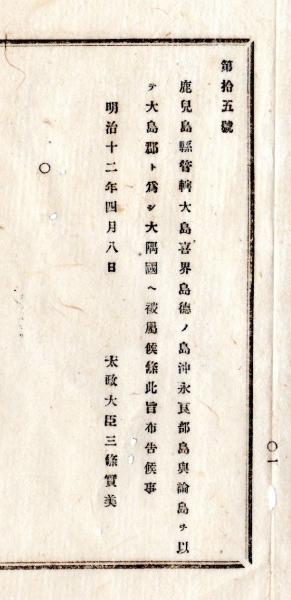 第拾五號
鹿兒島縣管轄大島喜界島德ノ島沖永良部島與論島ヲ以
テ大島郡ト爲シ大隅國ヘ被屬候條此旨布告候事
明治十二年四月八日
太政大臣三條實美
〇
〇一